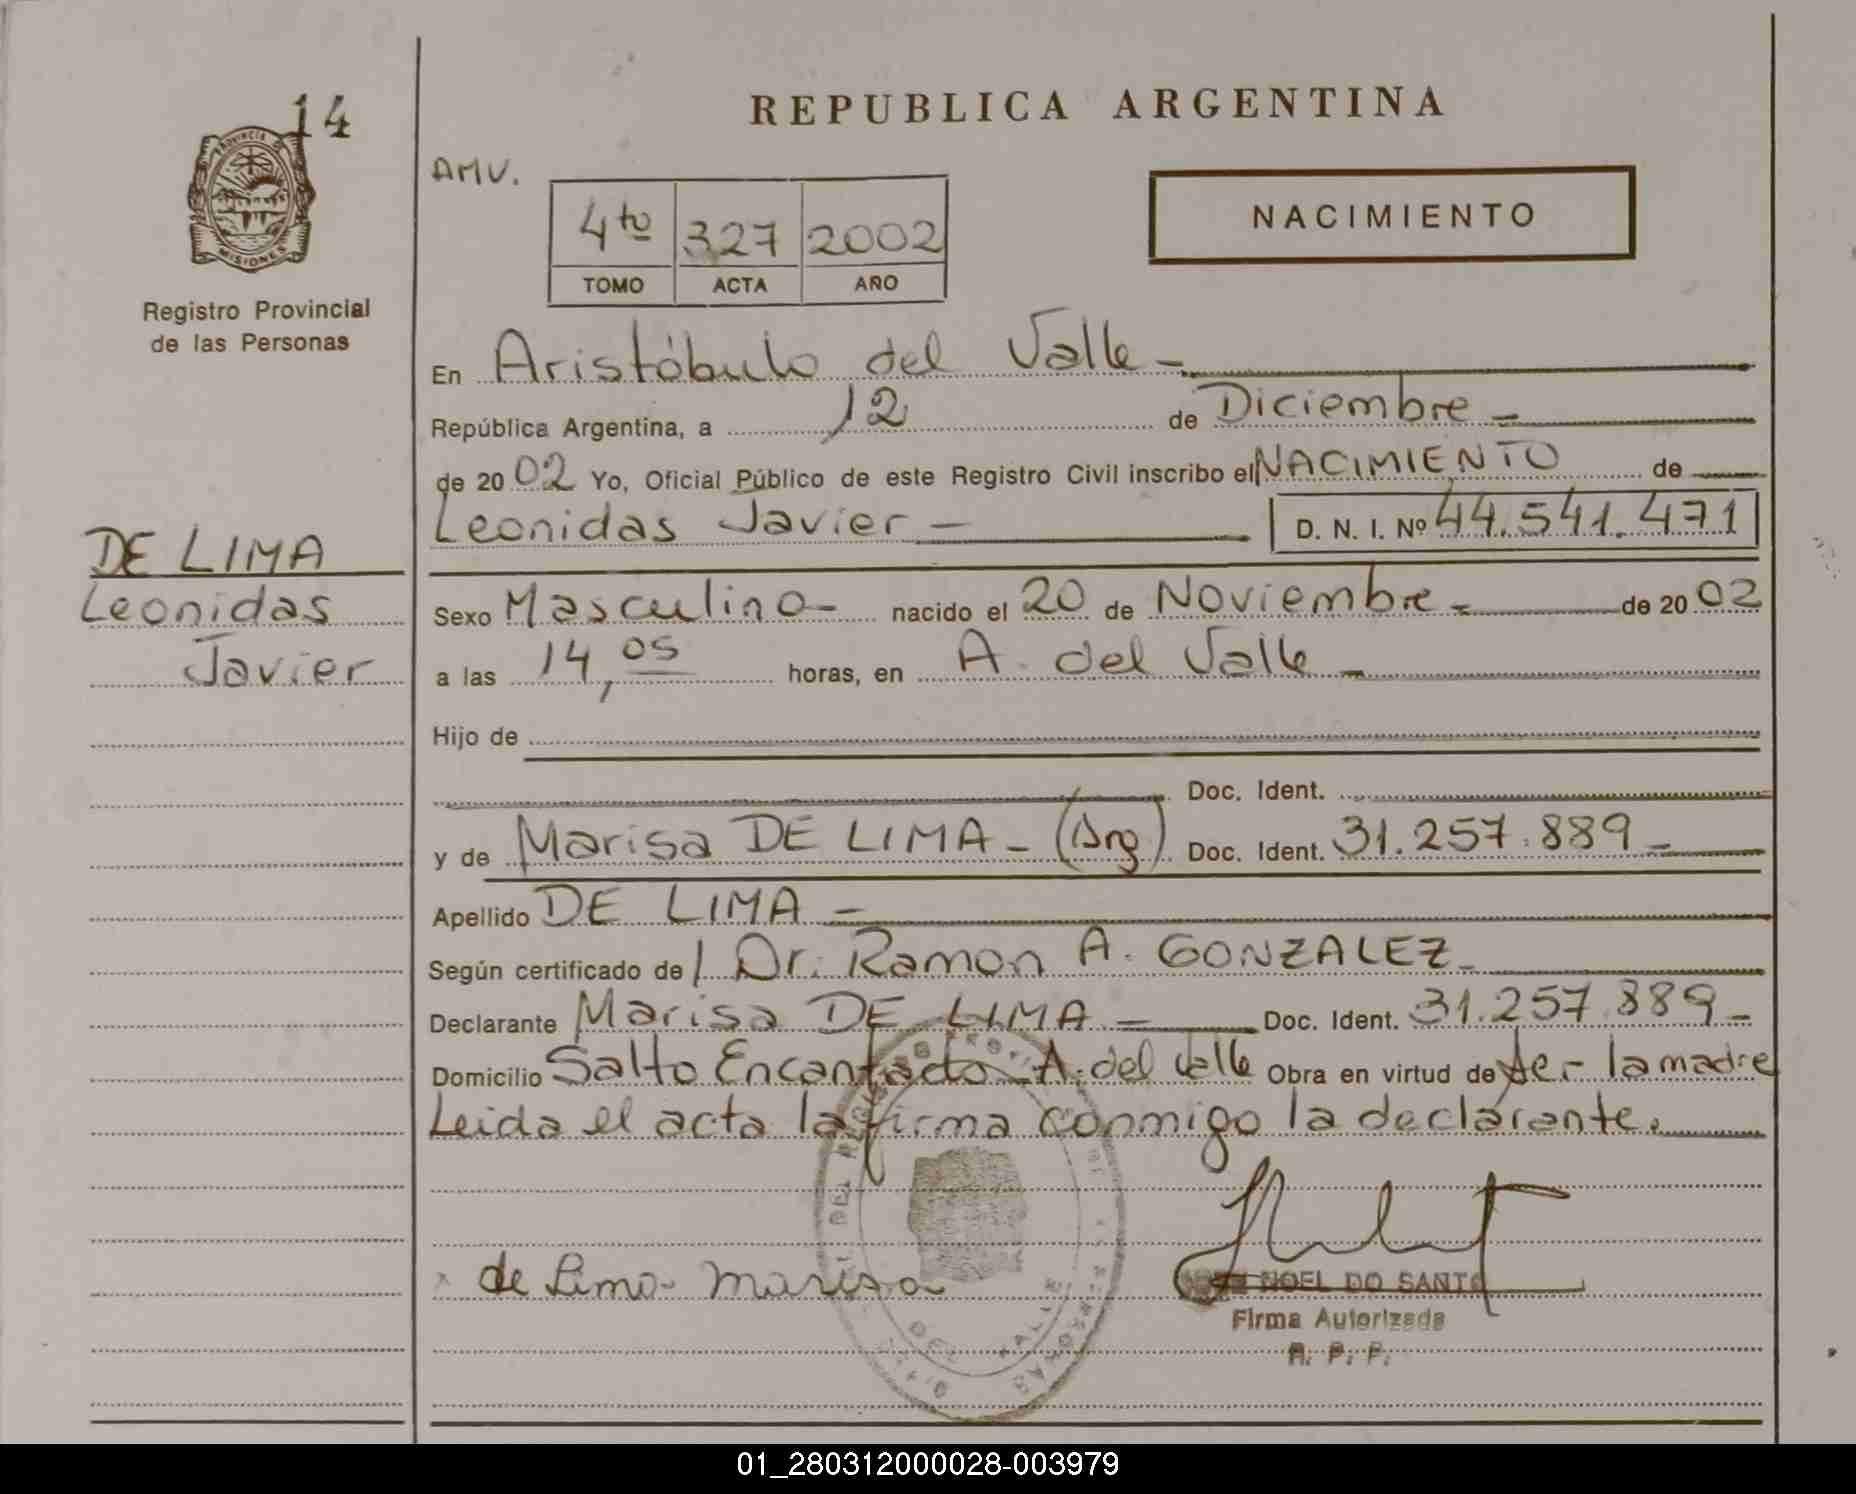 14
PROVINCIA DE
MISIONES
Registro Provincial
de las Personas
DE LIMA
Leonidas
Javier
REPUBLICA ARGENTINA
AMV.
4to 327 2002
TOMO ACTA AÑO
NACIMIENTO
En Aristóbulo del Valle -
República Argentina, a 12 de Diciembre -
de 20 02 Yo, Oficial Público de este Registro Civil inscribo el NACIMIENTO de
Leonidas Javier - D. N. I. Nº 44.541.471
Sexo Masculino - nacido el 20 de Noviembre - de 20 02
a las 14,05 horas, en A. del Valle -
Hijo de
Doc. Ident.
y de Marisa DE LIMA - (Arg) Doc. Ident. 31.257.889 -
Apellido DE LIMA -
Según certificado de Dr. Ramon A. GONZALEZ -
Declarante Marisa DE LIMA - Doc. Ident. 31.257.889 -
Domicilio Salto Encantado A. del Valle Obra en virtud de ser la madre
Leida el acta la firma conmigo la declarante.
de Lima Marisa
NOEL DO SANTO
Firma Autorizada
R. P. P.
DEL VALLE
01_280312000028-003979